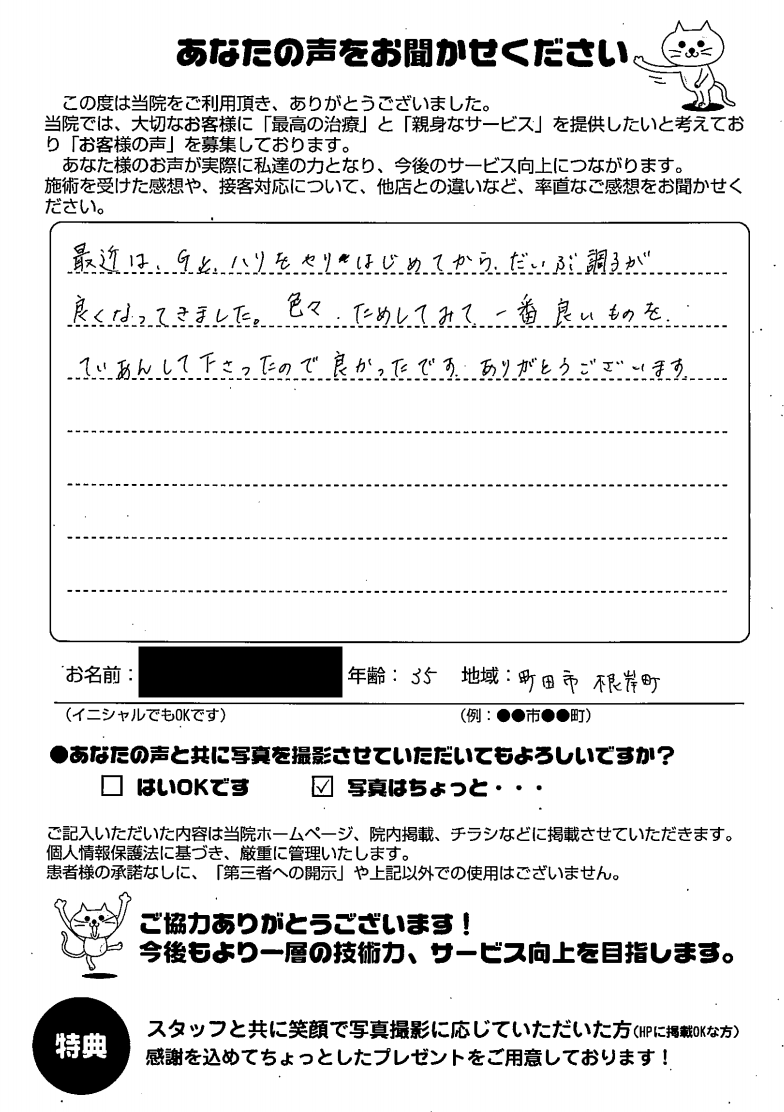 あなたの声をお聞かせください
この度は当院をご利用頂き、ありがとうございました。
当院では、大切なお客様に「最高の治療」と「親身なサービス」を提供したいと考えてお
り「お客様の声」を募集しております。
あなた様のお声が実際に私達の力となり、今後のサービス向上につながります。
施術を受けた感想や、接客対応について、他店との違いなど、率直なご感想をお聞かせく
ださい。
最近は、 ハリを はじめてから、だいぶ調子が
良くなってきました。色々、ためしてみて一番良いものを、
ていあんして下さったので良かったです。ありがとうございます。
お名前： 年齢：35 地域：町田市 根岸町
（イニシャルでもOKです） （例：●●市●●町）
●あなたの声と共に写真を撮影させていただいてもよろしいですか？
□ はいOKです ☑ 写真はちょっと・・・
ご記入いただいた内容は当院ホームページ、院内掲載、チラシなどに掲載させていただきます。
個人情報保護法に基づき、厳重に管理いたします。
患者様の承諾なしに、「第三者への開示」や上記以外での使用はございません。
ご協力ありがとうございます！
今後もより一層の技術力、サービス向上を目指します。
特典
スタッフと共に笑顔で写真撮影に応じていただいた方(HPに掲載OKな方)
感謝を込めてちょっとしたプレゼントをご用意しております！